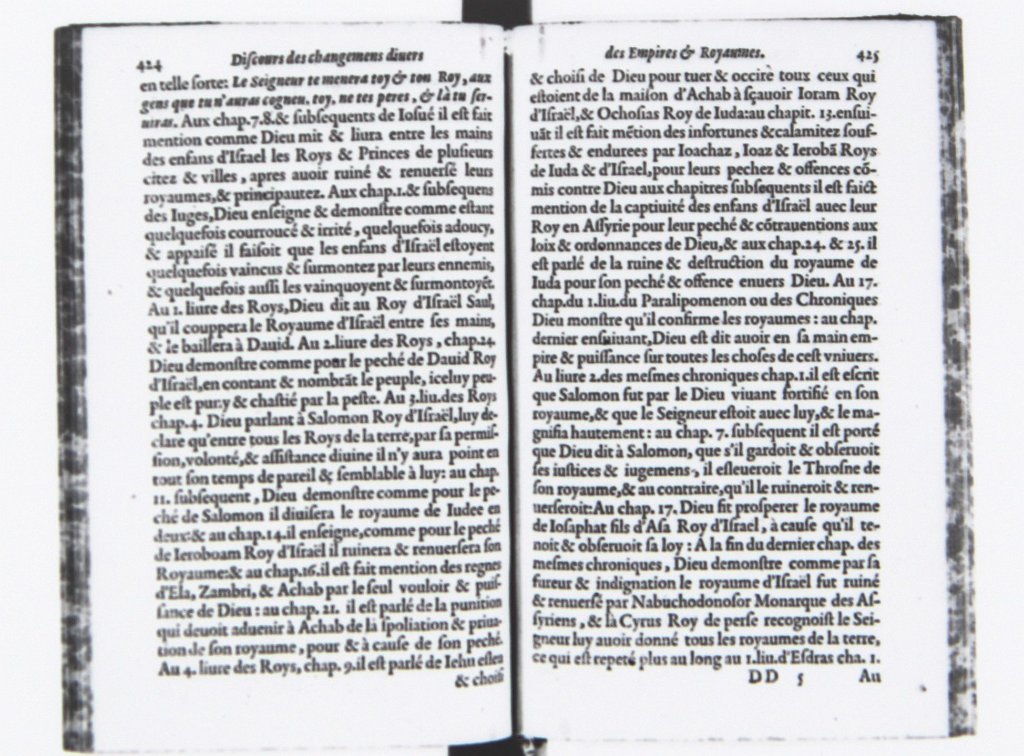 424 Discours des changemens diuers
en telle sorte: Le Seigneur te menera toy & ton Roy, aux
gens que tu n'auras cogneu, toy, ne tes peres, & là tu ser-
uiras. Aux chap.7.8.& subsequents de Iosué il est fait
mention comme Dieu mit & liura entre les mains
des enfans d'Israel les Roys & Princes de plusieurs
citez & villes, apres auoir ruiné & renuersé leurs
royaumes,& principautez. Aux chap.1.& subsequens
des Iuges,Dieu enseigne & demonstre comme estant
quelquefois courroucé & irrité, quelquefois adoucy,
& appaisé il faisoit que les enfans d'Israël estoyent
quelquefois vaincus & surmontez par leurs ennemis,
& quelquefois aussi les vainquoyent & surmontoyēt.
Au 1. liure des Roys,Dieu dit au Roy d'Israël Saul,
qu'il couppera le Royaume d'Israël entre ses mains,
& le baillera à Dauid. Au 2.liure des Roys, chap.24
Dieu demonstre comme pour le peché de Dauid Roy
d'Israël,en contant & nombrāt le peuple, iceluy peu-
ple est puny & chastié par la peste. Au 3.liu.des Roys
chap.4. Dieu parlant à Salomon Roy d'Israël,luy de-
clare qu'entre tous les Roys de la terre,par sa permis-
sion,volonté,& assistance diuine il n'y aura point en
tout son temps de pareil & semblable à luy: au chap.
11. subsequent, Dieu demonstre comme pour le pe-
ché de Salomon il diuisera le royaume de Iudee en
deux:& au chap.14.il enseigne,comme pour le peché
de Ieroboam Roy d'Israël il ruinera & renuersera son
Royaume:& au chap.16.il est fait mention des regnes
d'Ela, Zambri, & Achab par le seul vouloir & puis-
sance de Dieu : au chap. 21. il est parlé de la punition
qui deuoit aduenir à Achab de la spoliation & priua-
tion de son royaume, pour & à cause de son peché.
Au 4. liure des Roys, chap. 9.il est parlé de Iehu esleu
& choisi
des Empires & Royaumes. 425
& choisi de Dieu pour tuer & occire toux ceux qui
estoient de la maison d'Achab à sçauoir Ioram Roy
d'Israël,& Ochosias Roy de Iuda:au chapit. 13.ensui-
uāt il est fait mētion des infortunes & calamitez souf-
fertes & endurees par Ioachaz, Ioaz & Ierobā Roys
de Iuda & d'Israel,pour leurs pechez & offences cō-
mis contre Dieu aux chapitres subsequents il est faict
mention de la captiuité des enfans d'Israël auec leur
Roy en Assyrie pour leur peché & cōtrauentions aux
loix & ordonnances de Dieu,& aux chap.24. & 25. il
est parlé de la ruine & destruction du royaume de
Iuda pour son peché & offence enuers Dieu. Au 17.
chap.du 1.liu.du Paralipomenon ou des Chroniques
Dieu monstre qu'il confirme les royaumes : au chap.
dernier ensuiuant,Dieu est dit auoir en sa main em-
pire & puissance sur toutes les choses de cest vniuers.
Au liure 2.des mesmes chroniques chap.1.il est escrit
que Salomon fut par le Dieu viuant fortifié en son
royaume,& que le Seigneur estoit auec luy,& le ma-
gnifia hautement: au chap. 7. subsequent il est porté
que Dieu dit à Salomon, que s'il gardoit & obseruoit
ses iustices & iugemens, il esleueroit le Throsne de
son royaume,& au contraire,qu'il le ruineroit & ren-
uerseroit:Au chap. 17. Dieu fit prosperer le royaume
de Iosaphat fils d'Asa Roy d'Israel, à cause qu'il te-
noit & obseruoit sa loy : A la fin du dernier chap. des
mesmes chroniques, Dieu demonstre comme par sa
fureur & indignation le royaume d'Israël fut ruiné
& renuersé par Nabuchodonosor Monarque des As-
syriens, & là Cyrus Roy de perse recognoist le Sei-
gneur luy auoir donné tous les royaumes de la terre,
ce qui est repeté plus au long au 1.liu.d'Esdras cha. 1.
DD 5 Au